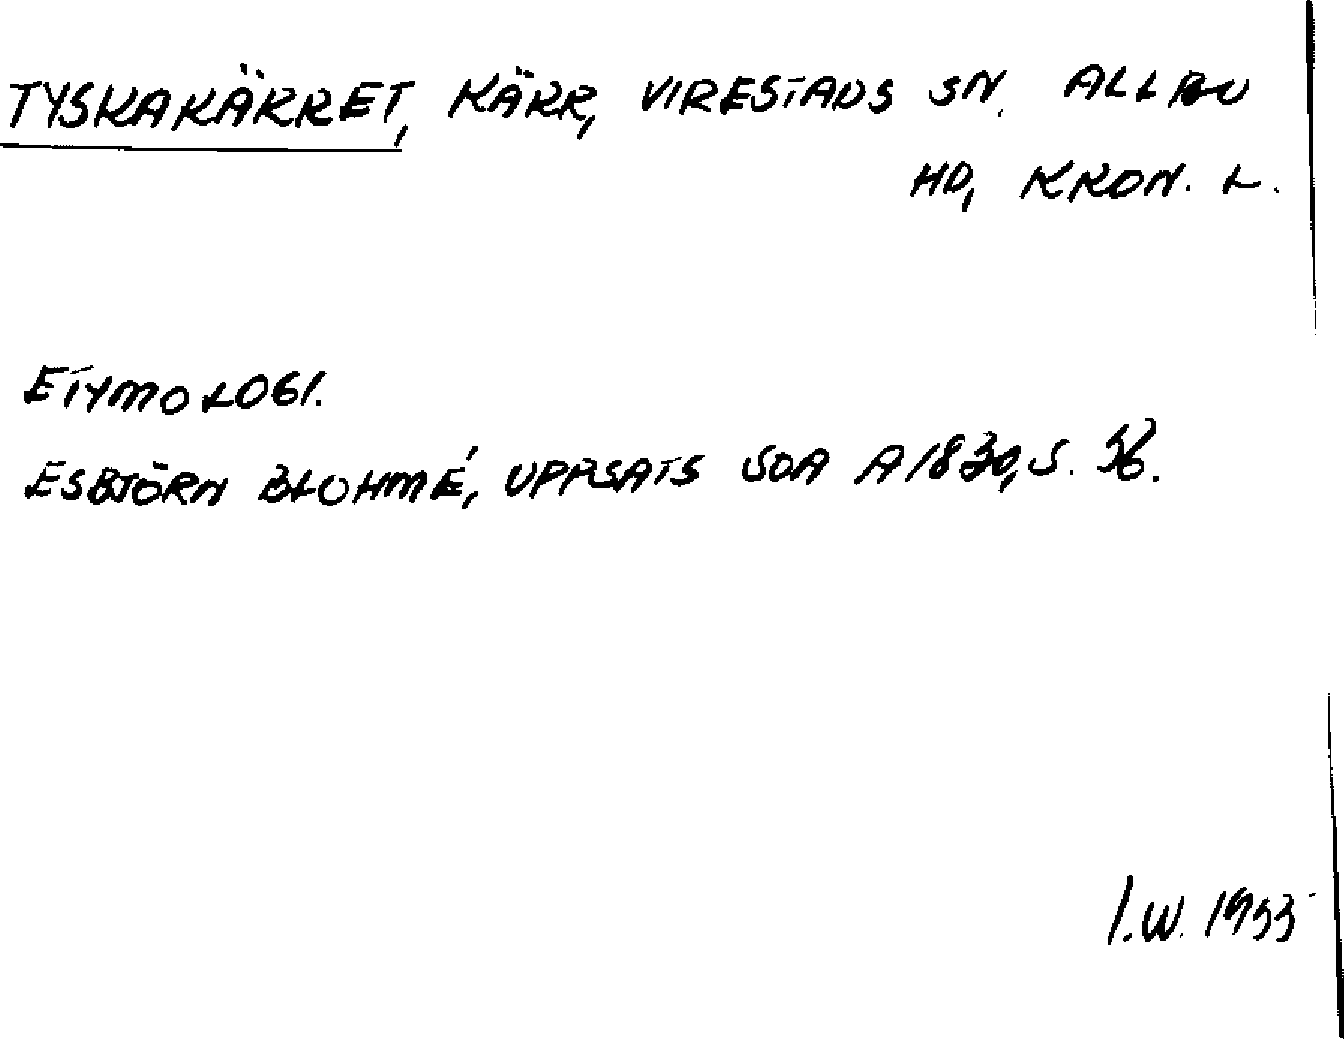 TYSKAKÄRRET, KÄRR, VIRESTADS SN. ALLBO
HD, KRON. L.
ETYMOLOGI.
ESBJÖRN BLOHMÉ, UPPSATS SOA A1830, S.
I.W.